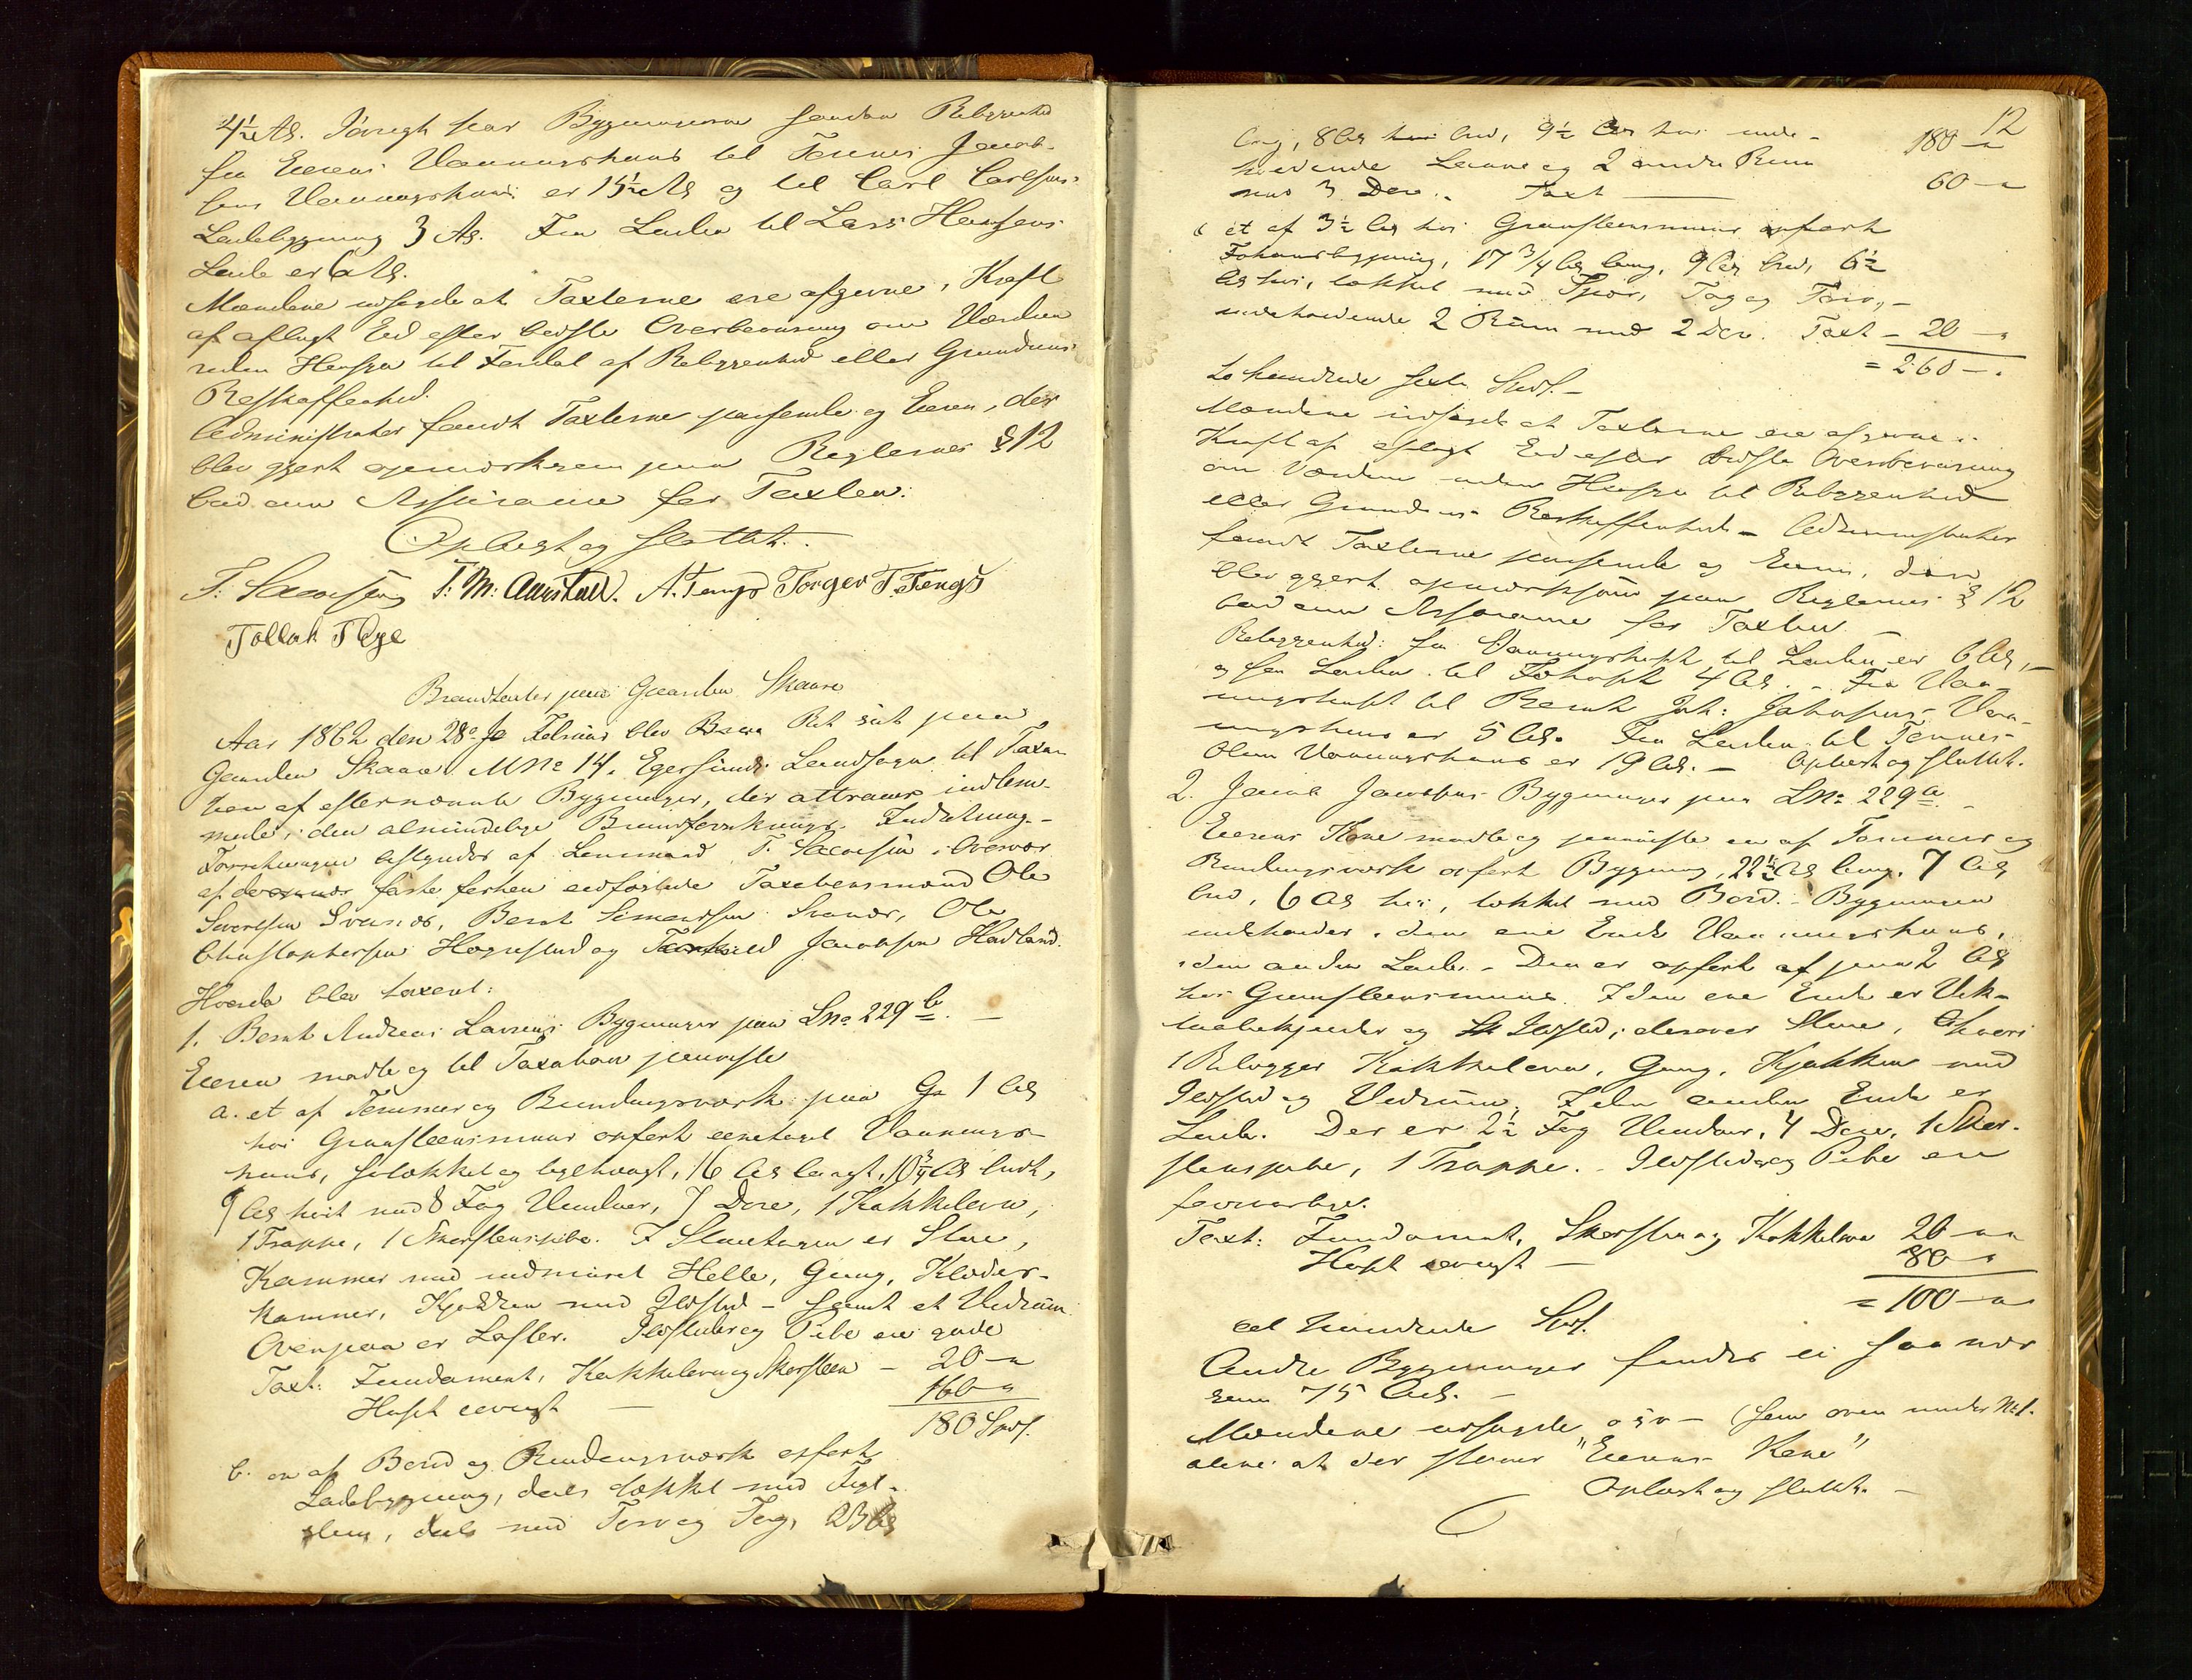 4½ Al. Iøvrigt har Bygningerne saadan Beliggenhed
fra Eierens Vaaningshuus til Tønnes Jacob-
sens Vaaningshuus er 15½ Al og til Carl Carlsens
Ladebygning 3 Al. Fra Laden til Lars Hansens
Lade er 6 Al.
Mændene udsagde at Taxterne ere afgivne i Kraft
af aflagt Eed efter bedste Overbeviisning om Værdien
uden Hensyn til Fordel af Beliggenhed eller Grundens
Beskaffenhed.
Administrator fandt Taxterne passende og Eieren, der
blev gjort opmærksom paa Reglernes § 12
bad om Assurance for Taxten.
Oplæst og sluttet.
T. M. Aarstad. A. Tengs Torger T. Tengs
Tollak T Eye
Brandtaxter paa Gaarden Skaare
Aar 1862 den 28de Februar blev Ret sat paa
Gaarden Skaare MNo 14, Egersunds Landsogn til Taxa-
tion af efternævnte Bygninger, der attraaes indlem-
mede i den almindelige Brandforsikrings Indretning.
Forretningen af Lensmand i Overvær
af faste Taxationsmænd Ole
Sivertsen Svanes, Bernt Simonsen Svanes, Ole
Christophersen Hognestad og Jacobsen Hadland.
Hvorda blev taxeret:
1. Bernt Andreas Larsens Bygninger paa LNo 229 b. —
Eieren mødte og til Taxation paaviste
a. et af Tømmer og Bindingsværk paa 1 Al
høi Graasteensmuur opført eenetages Vaanings-
huus, og teglhængt, 16 Al langt, 10¾ Al bredt,
9 Al høit med 8 Fag Vinduer, 7 Døre, 1 Kakkelovn,
1 Trappe, 1 Skorsteenspibe. I Stueetagen er Stue,
Kammer med indmuret Helle, Gang, Klæder-
kammer, Kjøkken med Ildsted – samt et Vedrum
Ovenpaa er Lofter. Ildsteder og Pibe ere gode
Taxt: Fundament, Kakkelovn og Skorsteen – 20 – "
Huset øvrigt — 160 "
180 Spd.
b. en af Bord og Bindingsværk opført
Ladebygning, deels tækket med Tegl-
steen, deels med Torv og Tag, 23 Al
12
lang, 8 Al bred, 9½ Al høi inde- 180 – "
holdende Laave og 2 andre Rum
med 3 Døre. Taxt — 60 – "
c et af 3½ Al høi Graasteensmuur opført
Fæhuusbygning, 17¾ Al lang, 9 Al bred, 6½
Al høi, tækket med Spær, Tag og Torv, –
indeholdende 2 Rum med 2 Døre. Taxt – 20 – "
= 260 – "
To hundrede sexti Spd. –
Mændene udsagde at Taxterne ere afgivne i
Kraft af aflagt Eed efter bedste Overbeviisning
om Værdien uden Hensyn til Beliggenhed
eller Grundens Beskaffenhed – Administrator
fandt Taxterne passende og Eieren, der
blev gjort opmærksom paa Reglernes § 12
bad om Assurance for Taxten –
Beliggenhed: fra Vaaningshuset til Laden er 6 Al, –
og fra Laden til Fæhuset 4 Al. – Fra Vaa-
ningshuset til Bernt Joh: Johnsens Vaa-
ningshuus er 5 Al. Fra Laden til Tønnes
Olsens Vaaningshuus er 19 Al. – Oplæst og sluttet.
2. Jacob Jacobsens Bygninger paa LNo 229 a. –
Eierens Kone mødte og paaviste en af Tømmer og
Bindingsværk opført Bygning, 22½ Al lang, 7 Al
bred, 6 Al høi, tækket med Bord. – Bygningen
indeholder i den ene Ende Vaaningshuus,
i den anden Lade. – Den er opført af paa 2 Al
høi Graasteensmuur. I den ene Ende er
og Ildsted, derover Stue, hvori
1 Bilægger Kakkelovn, Gang, Kjøkken med
Ildsted og Vedrum. I den anden Ende er
Lade. Der er 2½ Fag Vinduer, 4 Døre, 1 Skor-
steenspibe, 1 Trappe. – Ildsteder og Pibe ere
forsvarlige.
Taxt: Fundament, Skorsteen og Kakkelovn 20 – "
Huset øvrigt — 80 – "
= 100 – "
eet hundrede Spd.
Andre Bygninger findes ei saa nær
som 75 Al. –
Mændene udsagde o.s.v. – (som oven under No 1.
alene at der staaer "Eierens Kone"
Oplæst og sluttet. –